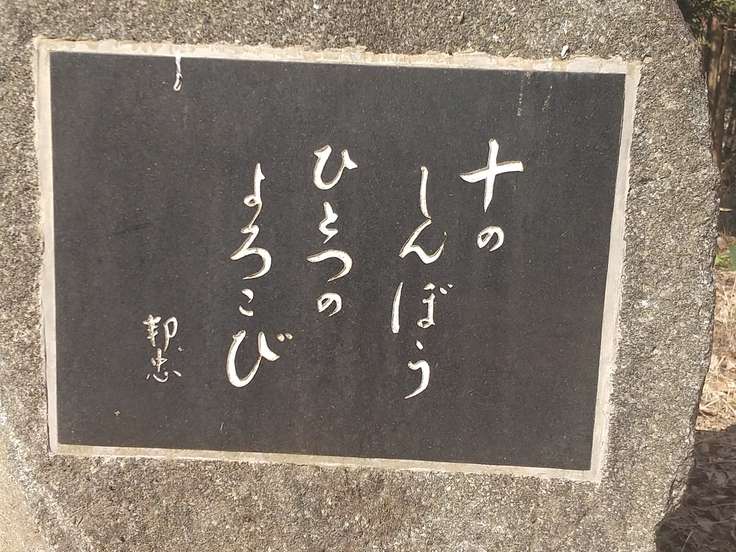 十の
しんぼう
ひとつの
よろこび
邦忠